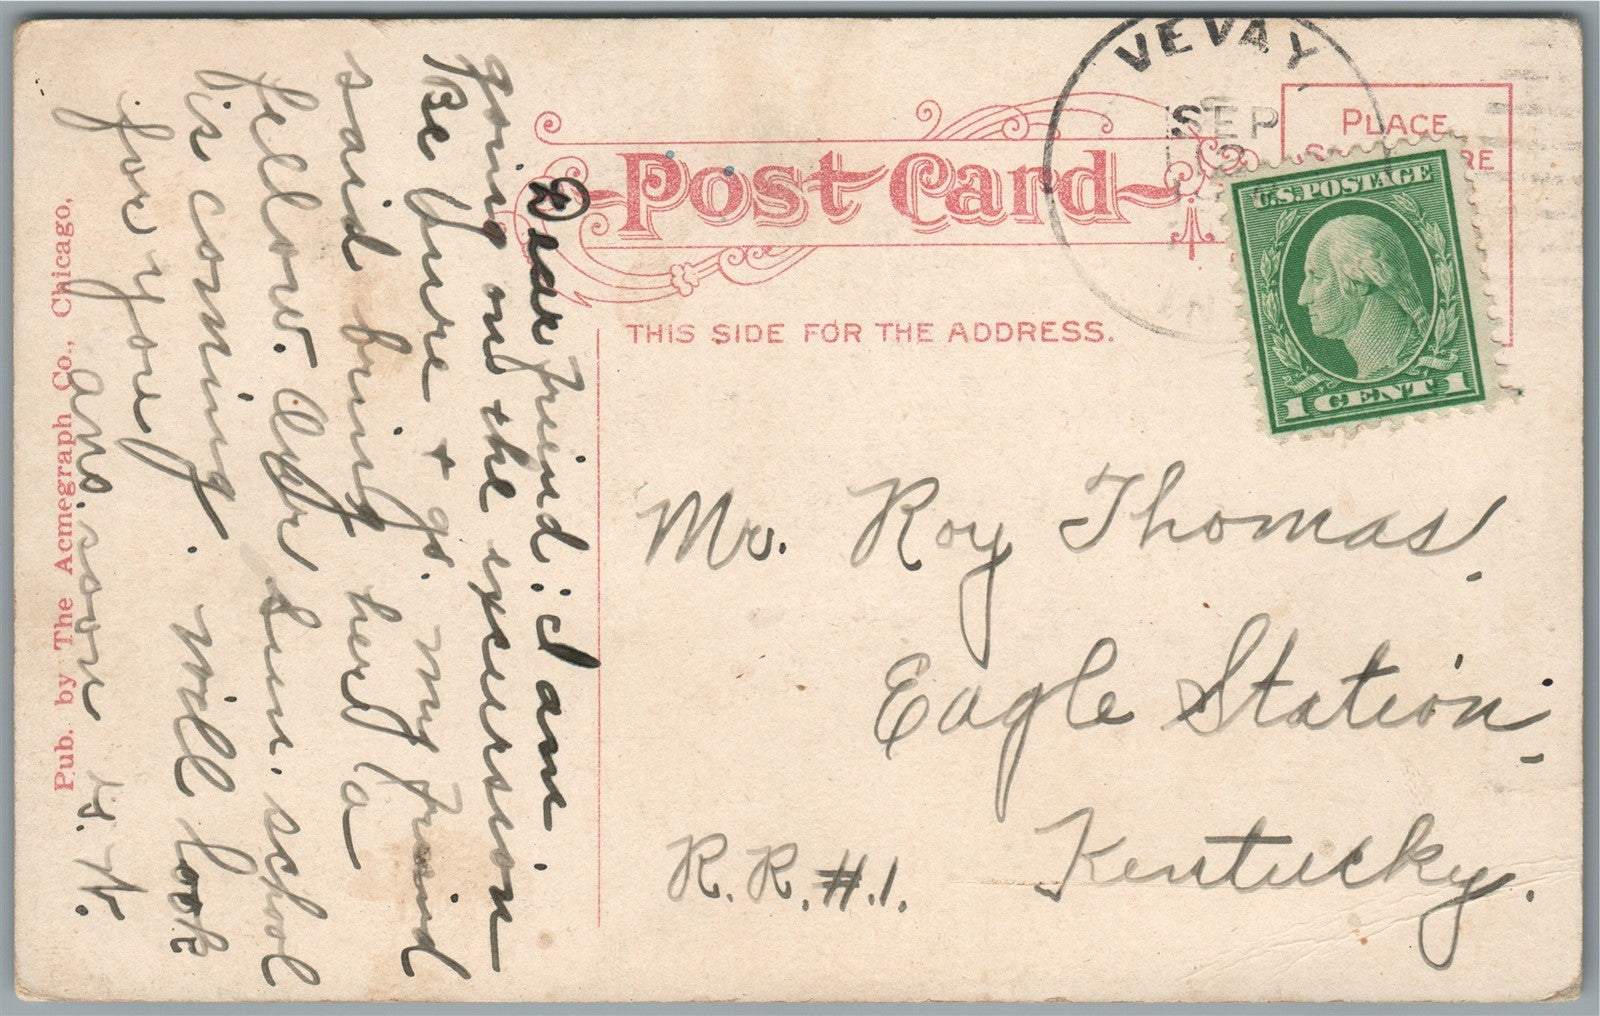 Post Card
THIS SIDE FOR THE ADDRESS.
VEVAY
SEP
IN
PLACE
U.S. POSTAGE
1 CENT 1
Mr. Roy Thomas.
Eagle Station,
Kentucky.
R.R.#.1.
Dear Friend: I am
going on the excursion
Be Sure + go. my Freind
said bring her a
fellow. Our Sun. school
is coming. Will look
for you
ans. soon
Pub. by The Acmegraph Co., Chicago.